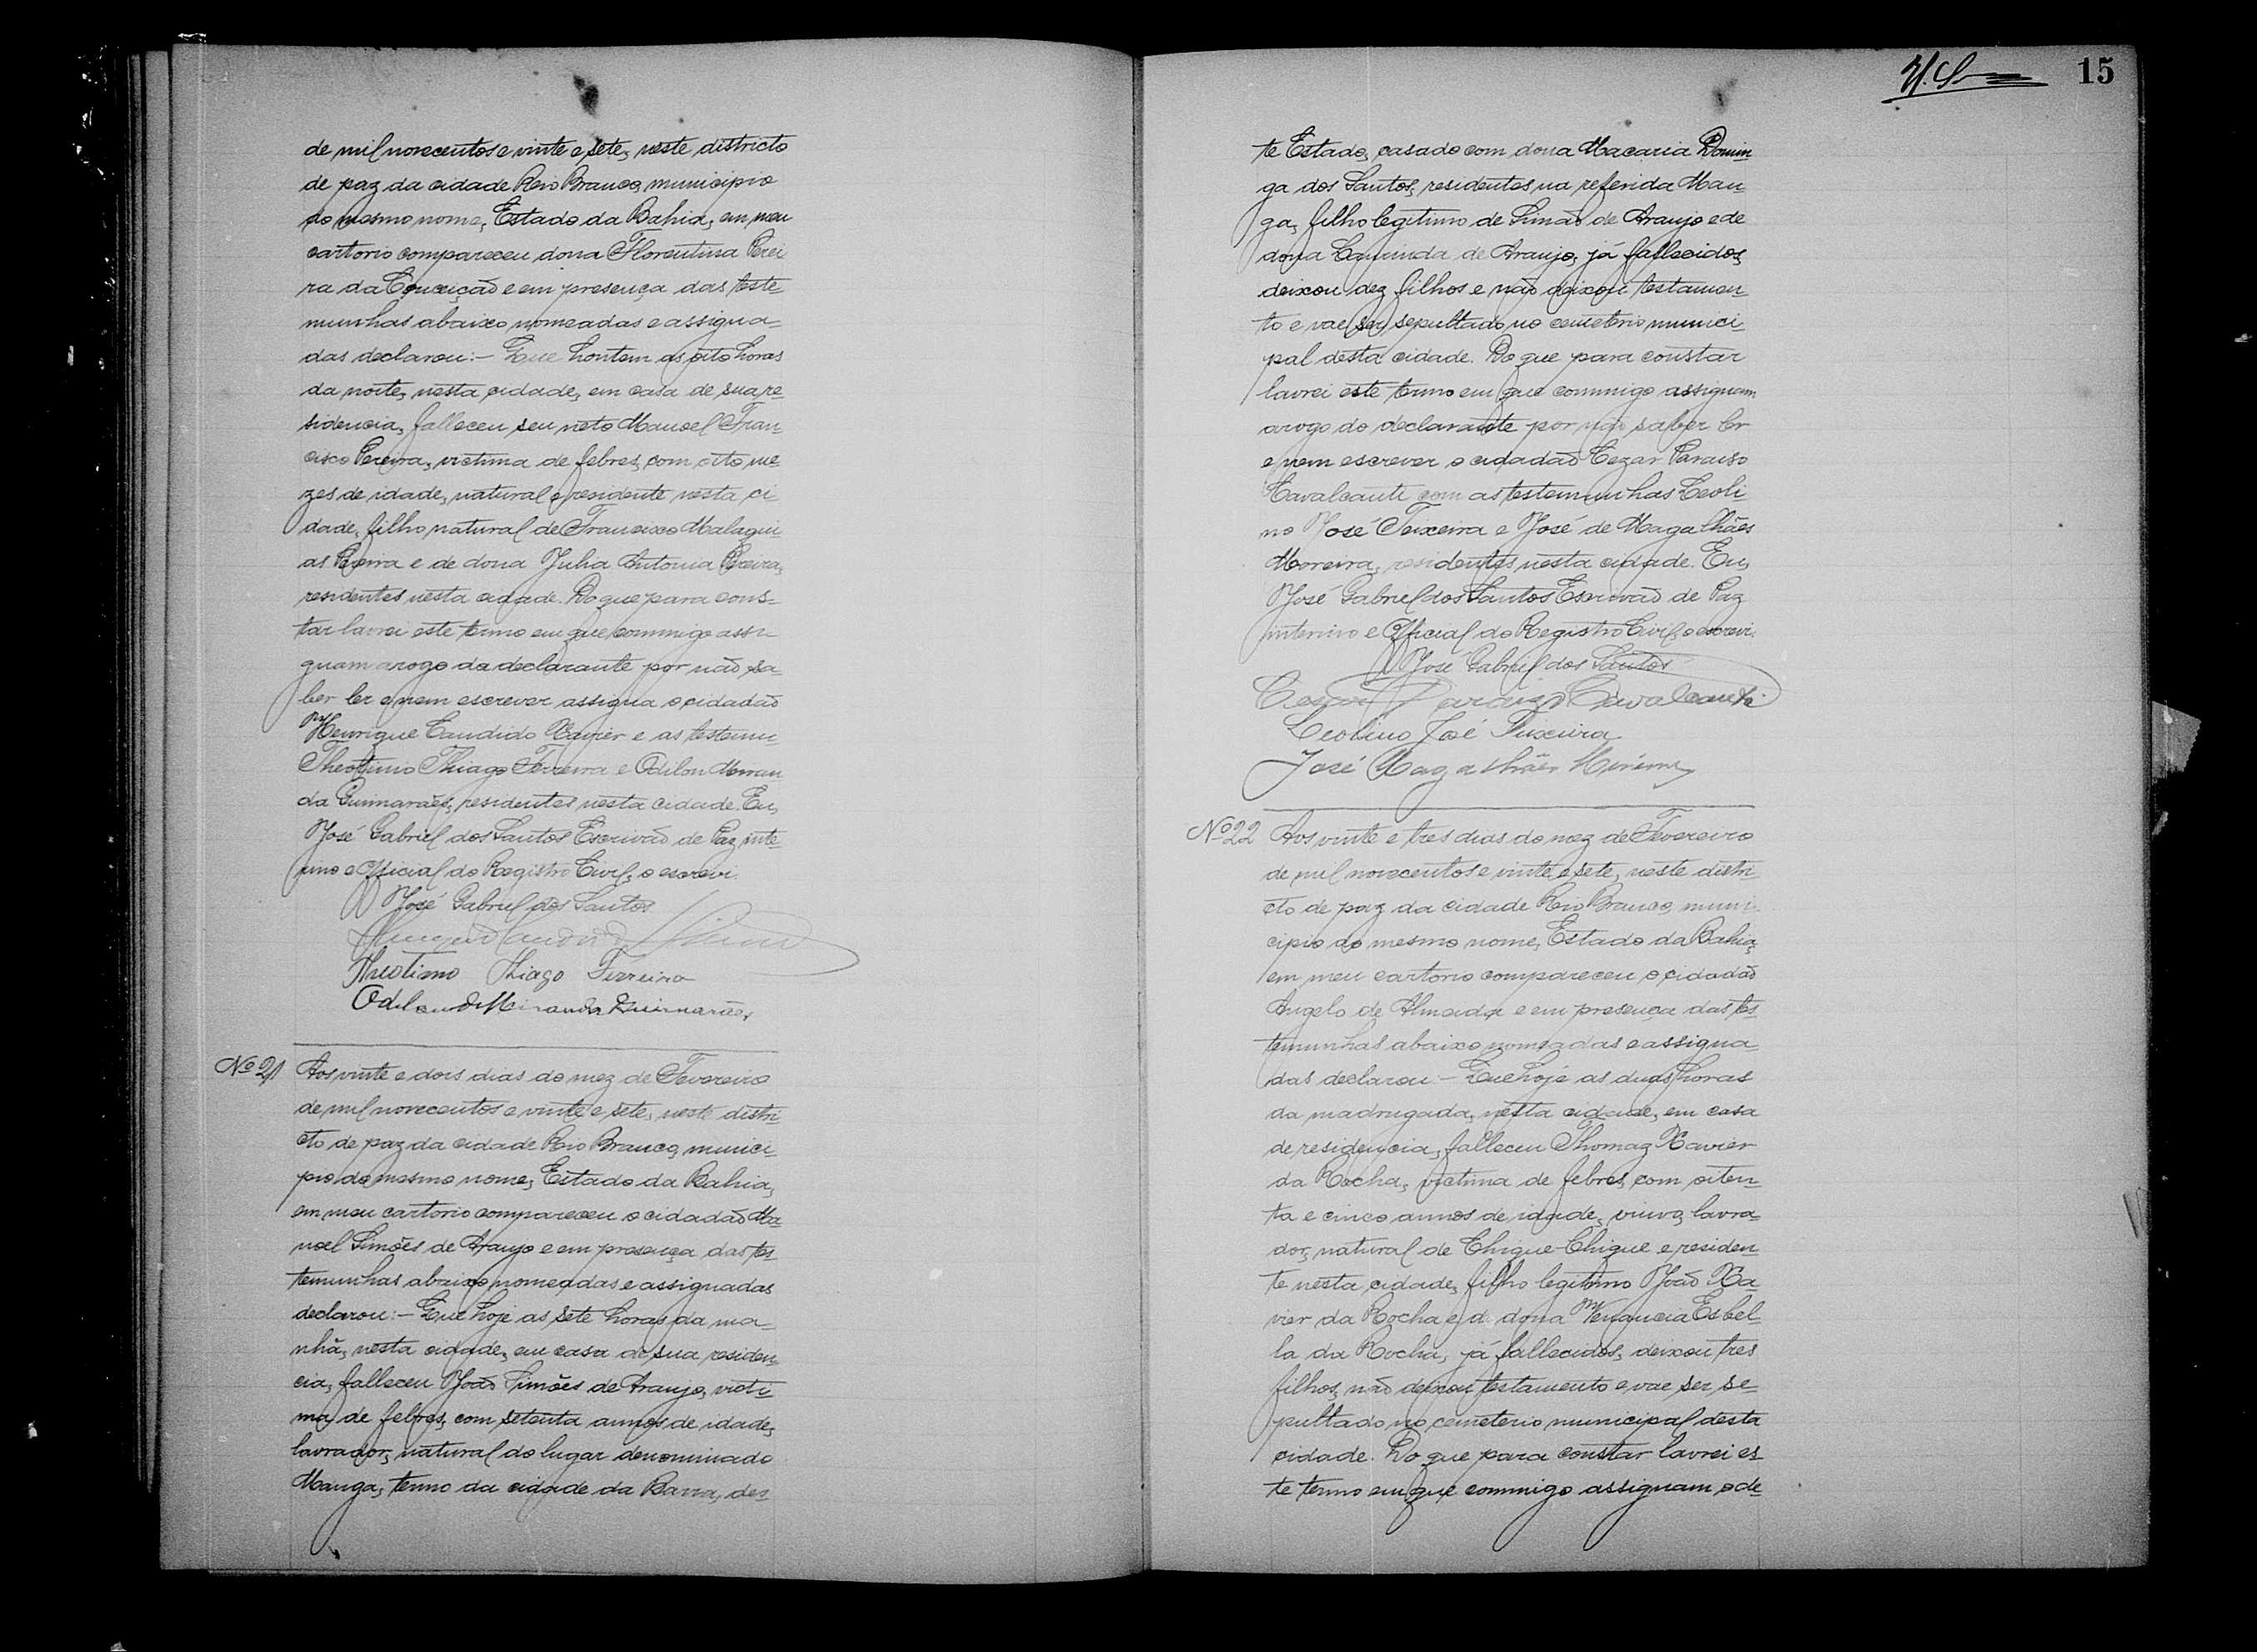 de mil novecentos e vinte e sete, neste districto
de paz da cidade Rio Branco, municipio
do mesmo nome, Estado da Bahia, em meu
cartorio compareceu dona Florentina Perei
ra da Conceição e em presença das teste-
munhas abaixo nomeadas e assigna-
das declarou:- Que hontem as oito horas
da noite, nesta cidade, em casa de sua re-
sidencia, falleceu seu neto Manoel Fran-
cisco Pereira, victima de febres, com oito me-
zes de idade, natural e residente nesta ci
dade, filho natural de Francisco Malaqui-
as Pereira e de dona Julia Antonia Pereira,
residentes nesta cidade. Do que para cons-
tar lavrei este termo em que commigo assi
gnam arogo da declarante por não sa-
ber ler e nem escrever assigna o cidadão
Henrique Candido Xavier e as testemu-
Theotimo Thiago Ferreira e Odilon Miran
da Guimarães, residentes nesta cidade. Eu,
José Gabriel dos Santos Escrivão de Paz inte-
rino e Official do Registro Civil, o escrevi.
José Gabriel dos Santos
Theotimo Thiago Ferreira
Odilon de Miranda Guimarães,
Nº 21 Aos vinte e dois dias do mez de Fevereiro
de mil novecentos e vinte e sete, neste distri-
cto de paz da cidade Rio Branco, munici-
pio do mesmo nome, Estado da Bahia,
em meu cartorio compareceu o cidadão Ma-
noel Simões de Araujo e em presença das tes-
temunhas abaixo nomeadas e assignadas
declarou:- Que hoje as sete horas da ma-
nhã, nesta cidade, em casa de sua residen-
cia, falleceu João Simões de Araujo, victi-
ma de febres, com setenta annos de idade,
lavrador, natural do lugar denominado
Manga, termo da cidade da Barra, des-
15
te Estado, casado com dona Macaria Domin
ga dos Santos, residentes na referida Man-
ga, filho legitimo de Simão de Araujo e de
dona de Araujo, já fallecidos,
deixou dez filhos e não deixou testamen-
to e vae ser sepultado no cemeterio munici-
pal desta cidade. Do que para constar
lavrei este termo em que commigo assignam
arogo do declarante por não saber ler
e nem escrever o cidadão Cezar Paraiso
Cavalcanti com as testemunhas Leoli-
no José Teixeira e José de Magalhães
Moreira, residentes nesta cidade. Eu,
José Gabriel dos Santos Escrivão de Paz
interino e Official do Registro Civil, o escrevi.
José Gabriel dos Santos
Cezar Paraiso Cavalcanti.
Leolino José Teixeira
José Magalhães Moreira
Nº 22 Aos vinte e tres dias do mez de Fevereiro
de mil novecentos e vinte e sete, neste distri-
cto de paz da cidade Rio Branco, muni-
cipio do mesmo nome, Estado da Bahia,
em meu cartorio compareceu o cidadão
Angelo de Almeida e em presença das tes-
temunhas abaixo nomeadas e assigna-
das declarou:- Que hoje as duas horas
da madrugada, nesta cidade, em casa
de residencia, falleceu Thomaz Xavier
da Rocha, victima de febres, com oiten-
ta e cinco annos de idade, viuvo, lavra-
dor, natural de Chique-Chique e residen-
te nesta cidade, filho legitimo João Xa-
vier da Rocha e d. dona Venancia Esbel-
la da Rocha, já fallecidos, deixou tres
filhos, não deixou testamento e vae ser se-
pultado no cemeterio municipal desta
cidade. Do que para constar lavrei es-
te termo em que commigo assignam o de-